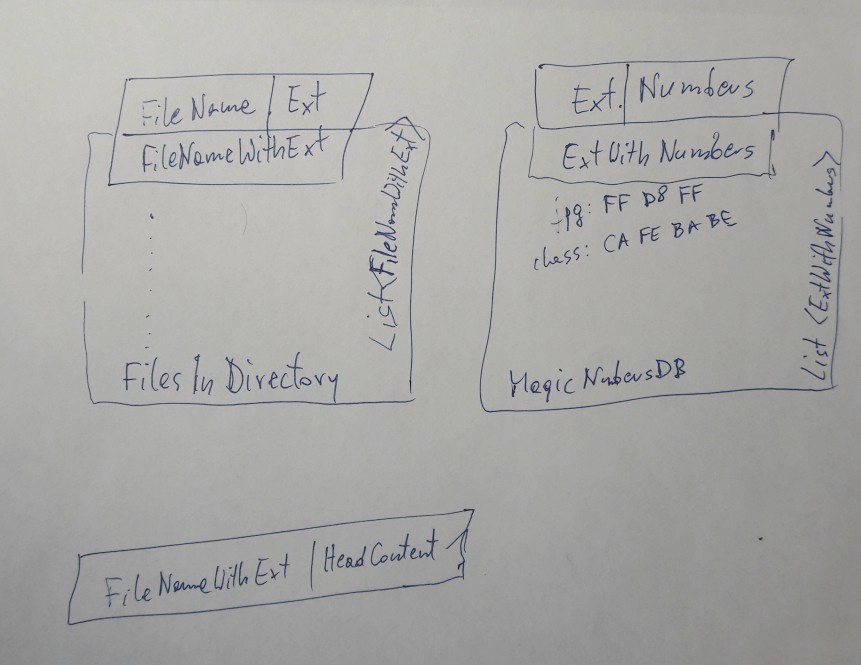 FileName | Ext
FileNameWithExt
List<FileNameWithExt>
Files In Directory
Ext. | Numbers
ExtWithNumbers
jpg: FF D8 FF
class: CA FE BA BE
List <ExtWithNumbers>
MagicNumbersDB
FileNameWithExt | HeadContent